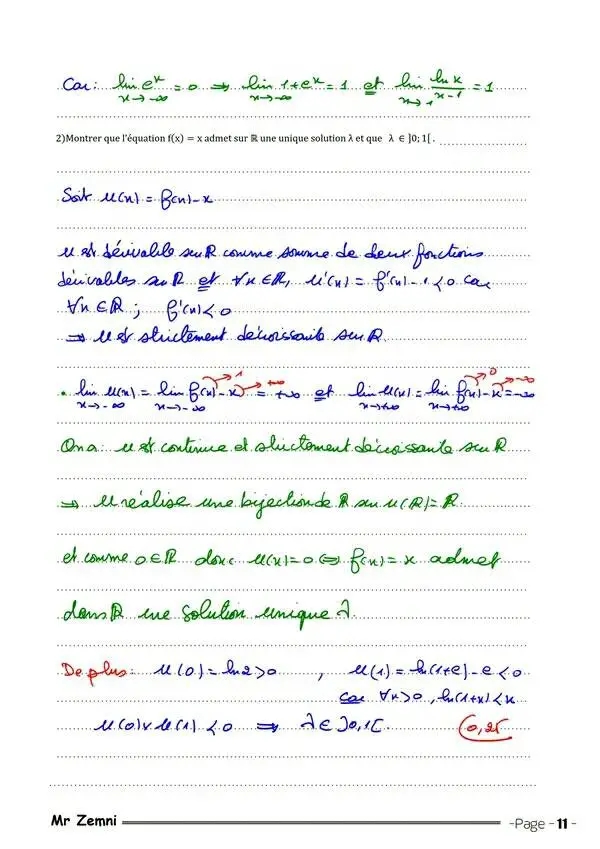 Car: lim e^x = 0 ⇒ lim 1+e^x = 1 et lim lnx/(x-1) = 1
x→-∞ x→-∞ x→1
2)Montrer que l'équation f(x) = x admet sur ℝ une unique solution λ et que λ ∈ ]0; 1[ .
Soit u(x) = f(x) - x
u est dérivable sur ℝ comme somme de deux fonctions
dérivables sur ℝ et ∀x∈ℝ, u'(x) = f'(x) - 1 < 0 car
∀x∈ℝ ; f'(x) < 0
⇒ u est strictement décroissante sur ℝ.
• lim u(x) = lim f(x) - x = +∞ et lim u(x) = lim f(x) - x = -∞
x→-∞ x→-∞ x→+∞ x→+∞
On a: u est continue et strictement décroissante sur ℝ
⇒ u réalise une bijection de ℝ sur u(ℝ) = ℝ
et comme 0∈ℝ donc u(x)=0 ⇔ f(x) = x admet
dans ℝ une solution unique λ.
De plus: u(0) = ln2 > 0 , u(1) = ln(1+e) - e < 0
car ∀x>0, ln(1+x) < x
u(0) × u(1) < 0 ⇒ λ ∈ ]0,1[. 0,25
Mr Zemni -Page - 11 -